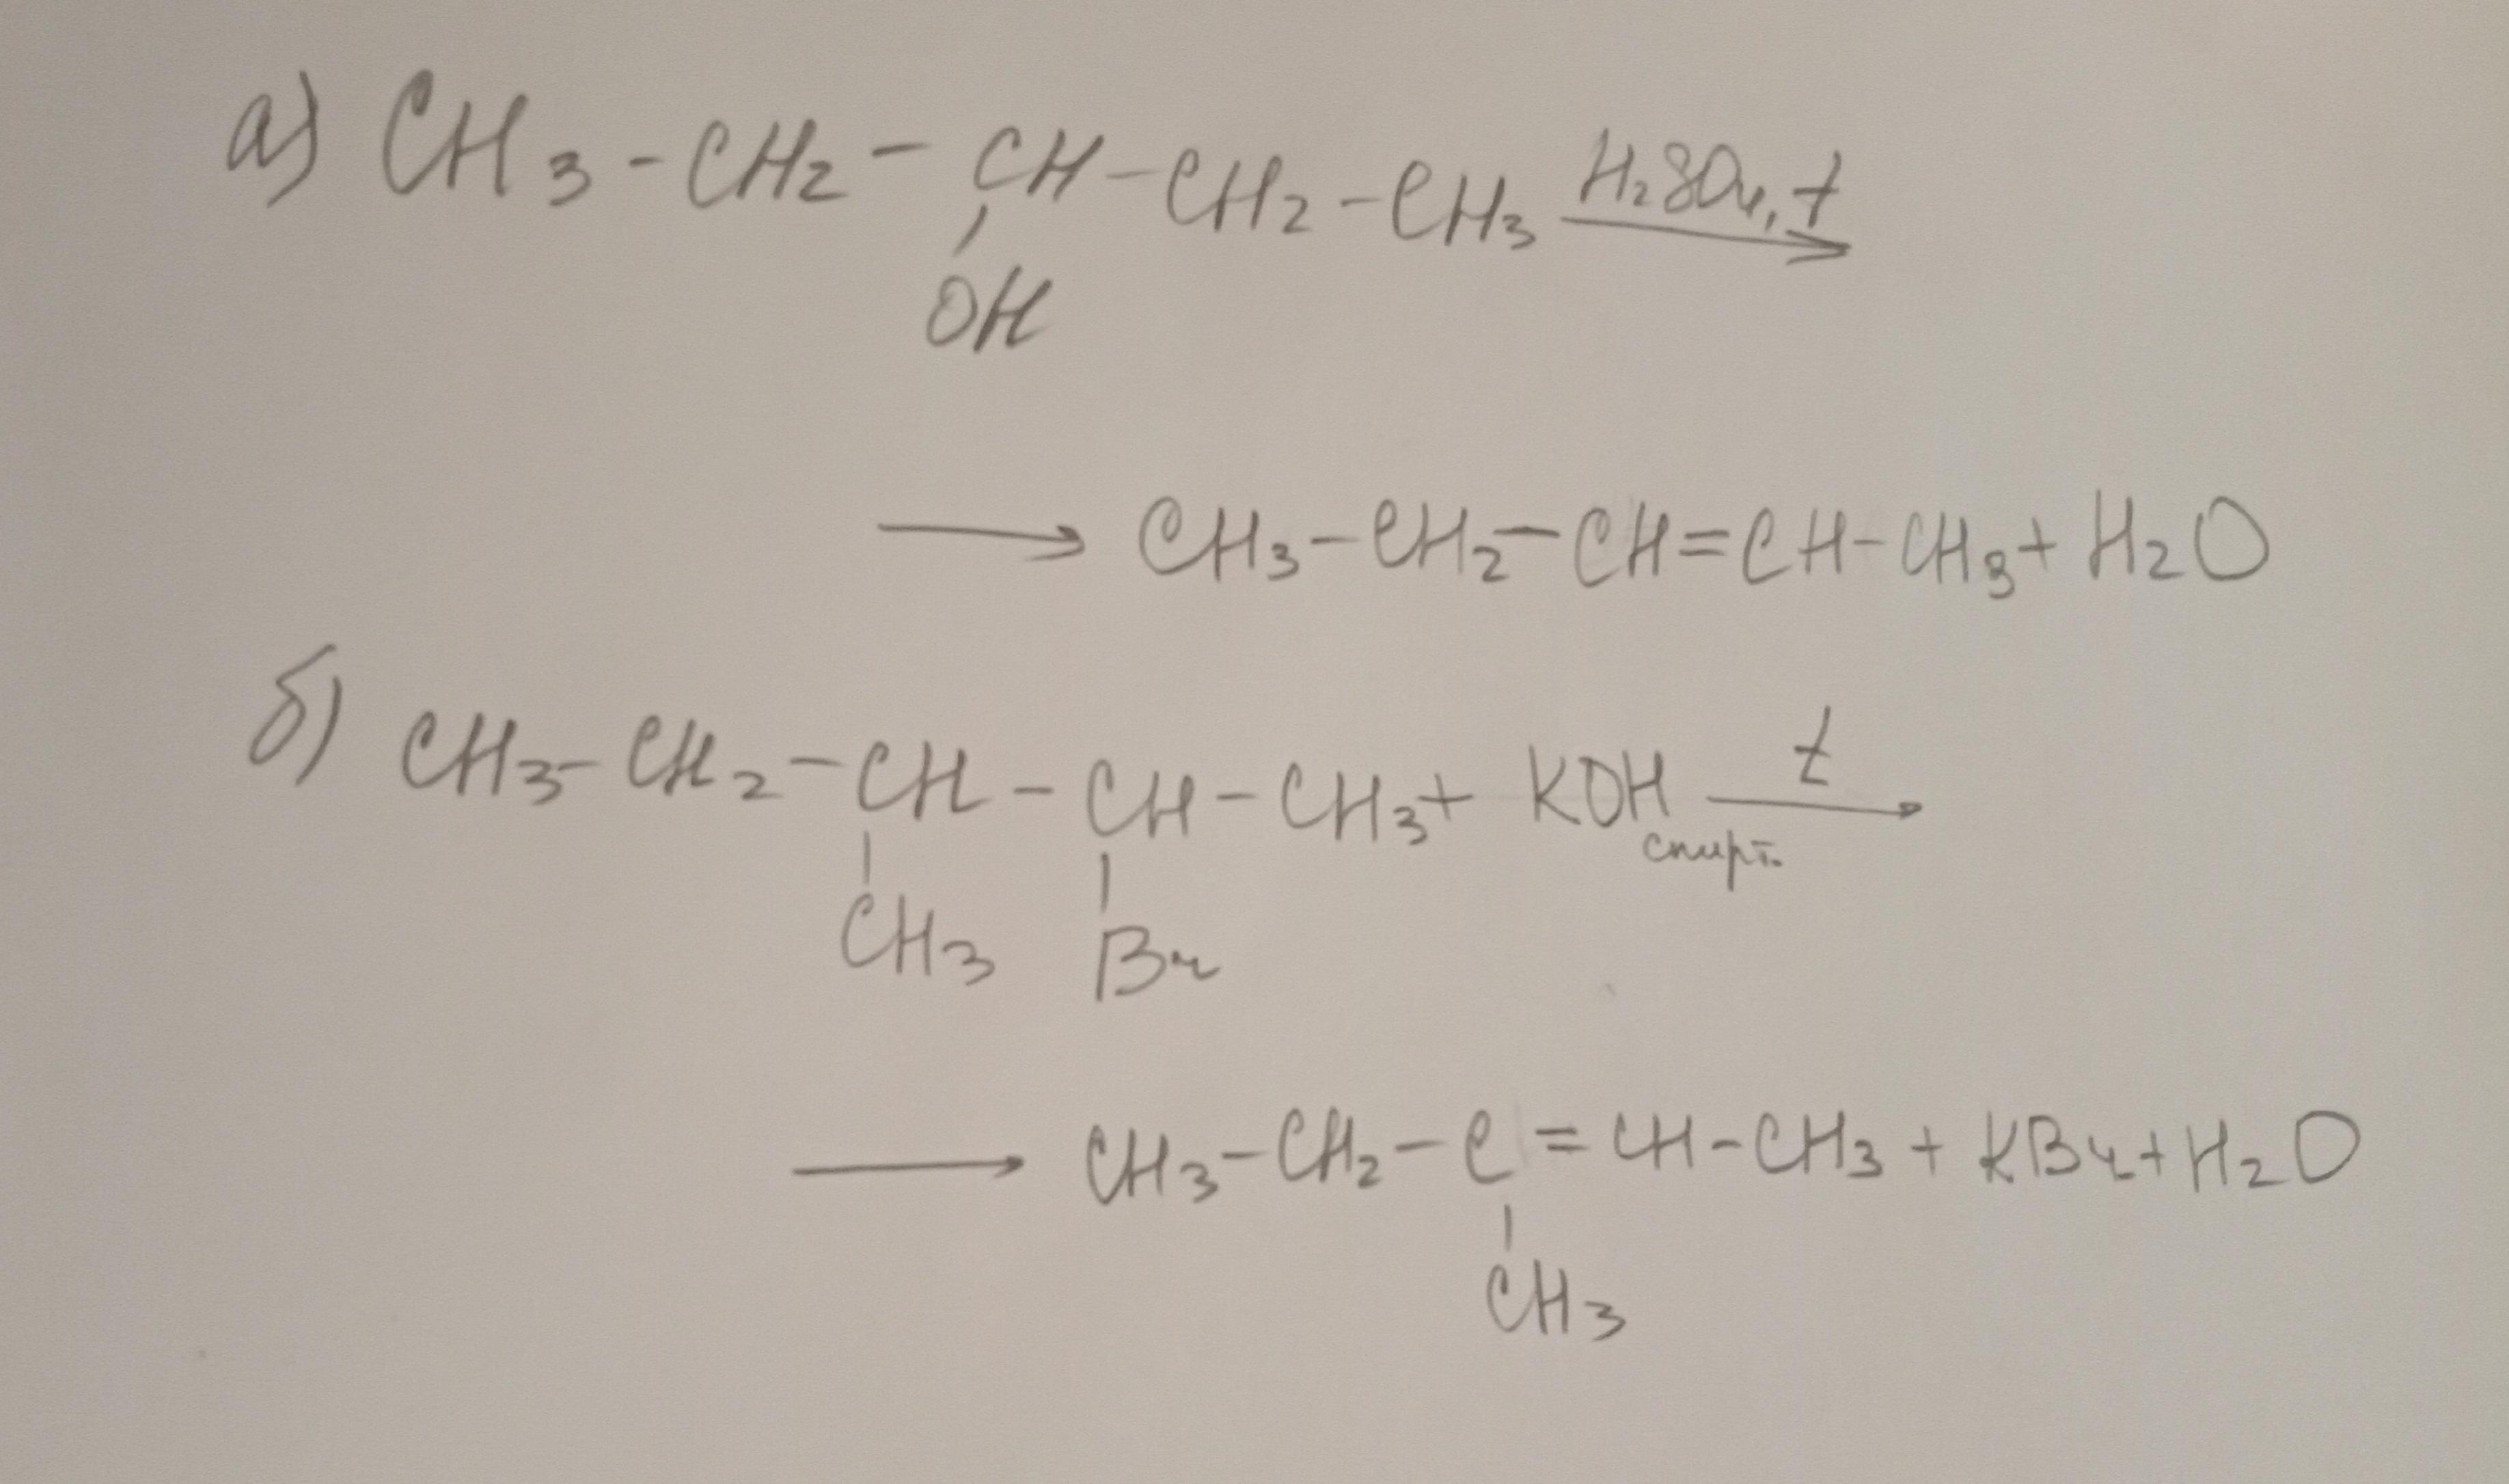 а) CH3-CH2-CH-CH2-CH3 H2SO4, t
OH
CH3-CH2-CH=CH-CH3+H2O
б) CH3-CH2-CH-CH-CH3+ KOH спирт. t
CH3 Br
CH3-CH2-C=CH-CH3+KBr+H2O
CH3